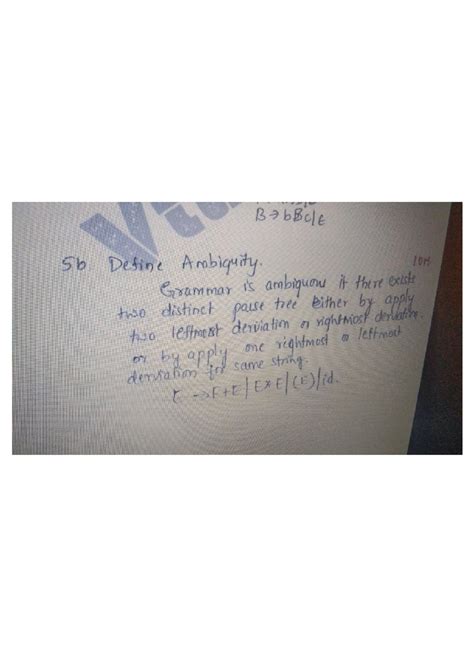 B→bBc|ε
5b Define Ambiquity. 10M
Grammar is ambiguous if there exists
two distinct pause tree either by apply
two leftmost derviation or rightmost derviation.
or by apply one rightmost & leftmost
derviation for same string.
E →E+E | E*E | (E) | id.